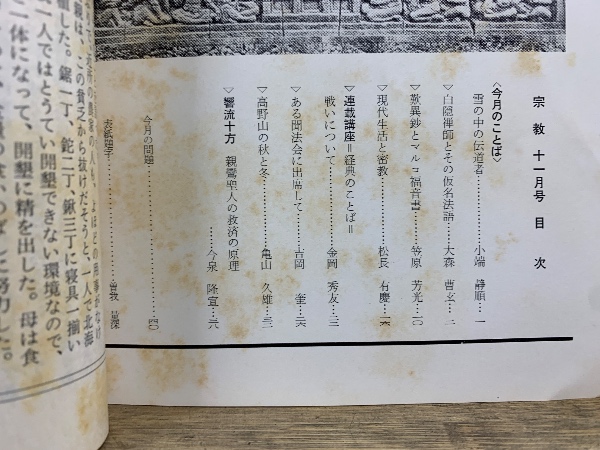 宗教 十一月号 目次
〈今月のことば〉
雪の中の伝道者…………小端 静順…一
▽白隠禅師とその仮名法語…大森 曹玄…二
▽歎異鈔とマルコ福音書……笠原 芳光…一〇
▽現代生活と密教……………松長 有慶…一六
▽連載講座=経典のことば=
戦いについて………………金岡 秀友…三
▽ある聞法会に出席して……吉岡
▽高野山の秋と冬……………亀山 久雄…三
▽響流十方 親鸞聖人の救済の原理
…今泉 隆宣…六
今月の問題……………………四〇
表紙題字……………………曽我 量深
一人で北海
親は、この貧乏から抜けだそうと、
した。鋸一丁、鉈二丁、鍬三丁に寝具一揃い
一人ではとうてい開墾できない環境なので、
一体になって、開墾に精を出した。母は食
努力した。